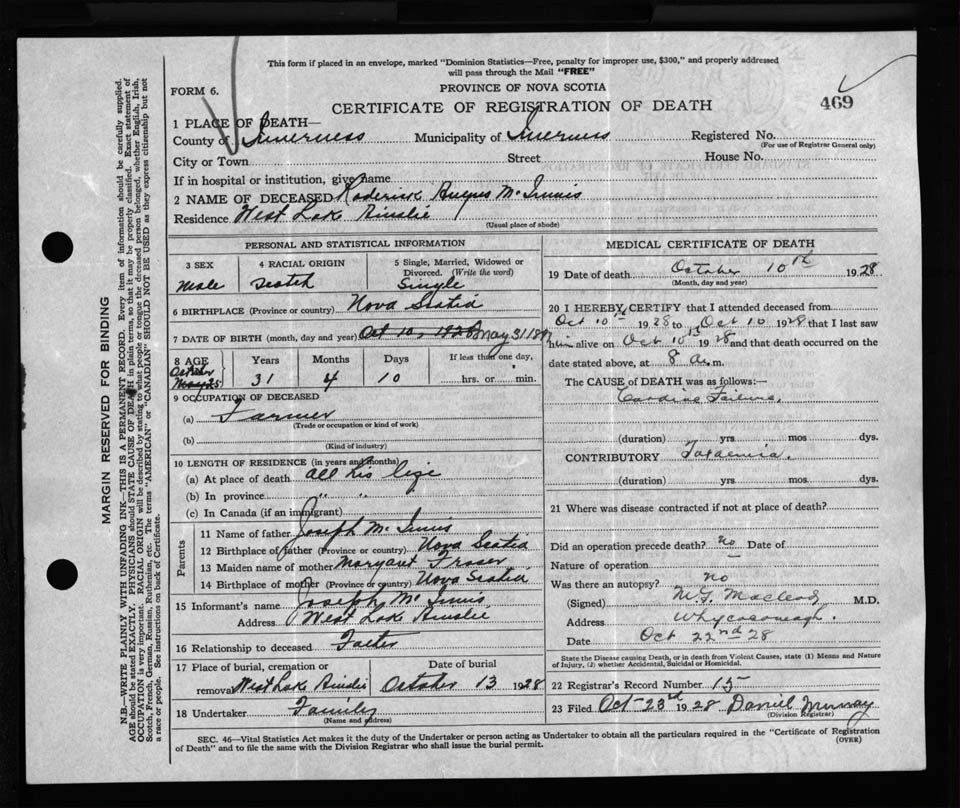 This form if placed in an envelope, marked "Dominion Statistics—Free, penalty for improper use, $300," and properly addressed
will pass through the Mail "FREE"
FORM 6.
PROVINCE OF NOVA SCOTIA
CERTIFICATE OF REGISTRATION OF DEATH
469
1 PLACE OF DEATH—
County of Inverness Municipality of Inverness Registered No.
(For use of Registrar General only)
City or Town Street House No.
If in hospital or institution, give name
2 NAME OF DECEASED Roderick Angus McInnis
Residence West Lake Ainslie
(Usual place of abode)
PERSONAL AND STATISTICAL INFORMATION
3 SEX
Male
4 RACIAL ORIGIN
Scotch
5 Single, Married, Widowed or
Divorced. (Write the word)
Single
6 BIRTHPLACE (Province or country) Nova Scotia
7 DATE OF BIRTH (month, day and year) Oct 10, 1928 May 31 1897
8 AGE
October
May 25
Years
31
Months
4
Days
10
If less than one day,
hrs. or min.
9 OCCUPATION OF DECEASED
(a) Farmer
(Trade or occupation or kind of work)
(b)
(Kind of industry)
10 LENGTH OF RESIDENCE (in years and months)
(a) At place of death all his life
(b) In province " "
(c) In Canada (if an immigrant)
Parents
11 Name of father Joseph McInnis
12 Birthplace of father (Province or country) Nova Scotia
13 Maiden name of mother Margaret Fraser
14 Birthplace of mother (Province or country) Nova Scotia
15 Informant's name Joseph McInnis
Address West Lake Ainslie
16 Relationship to deceased Father
17 Place of burial, cremation or
removal West Lake Ainslie
Date of burial
October 13 1928
18 Undertaker Family
(Name and address)
MEDICAL CERTIFICATE OF DEATH
19 Date of death October 10th 1928
(Month, day and year)
20 I HEREBY CERTIFY that I attended deceased from
Oct 10th 1928 to Oct 10 1928 that I last saw
him alive on Oct 10th 1928 and that death occurred on the
date stated above, at 8 a.m.
The CAUSE of DEATH was as follows:—
Cardiac Failure.
(duration) yrs. mos. dys.
CONTRIBUTORY Toxaemia.
(duration) yrs. mos. dys.
21 Where was disease contracted if not at place of death?
Did an operation precede death? no Date of
Nature of operation —
Was there an autopsy? no
(Signed) Macleod M.D.
Address Whycocomagh.
Date Oct 22nd 28
State the Disease causing Death, or in death from Violent Causes, state (1) Means and Nature
of Injury, (2) whether Accidental, Suicidal or Homicidal.
22 Registrar's Record Number 15
23 Filed Oct 23rd 1928 Daniel Murray
(Division Registrar)
SEC. 46—Vital Statistics Act makes it the duty of the Undertaker or person acting as Undertaker to obtain all the particulars required in the "Certificate of Registration
of Death" and to file the same with the Division Registrar who shall issue the burial permit.
(OVER)
MARGIN RESERVED FOR BINDING
N.B.—WRITE PLAINLY WITH UNFADING INK—THIS IS A PERMANENT RECORD. Every item of information should be carefully supplied.
AGE should be stated EXACTLY. PHYSICIANS should STATE CAUSE OF DEATH in plain terms, so that it may be properly classified. Exact statement of
OCCUPATION is very important. RACIAL ORIGIN will be described by stating to what people or tongue the deceased person belonged, whether English, Irish,
Scotch, French, German, Russian, Ruthenian, etc. The terms "AMERICAN" or "CANADIAN" SHOULD NOT BE USED as they express citizenship but not
a race or people. See instructions on back of Certificate.